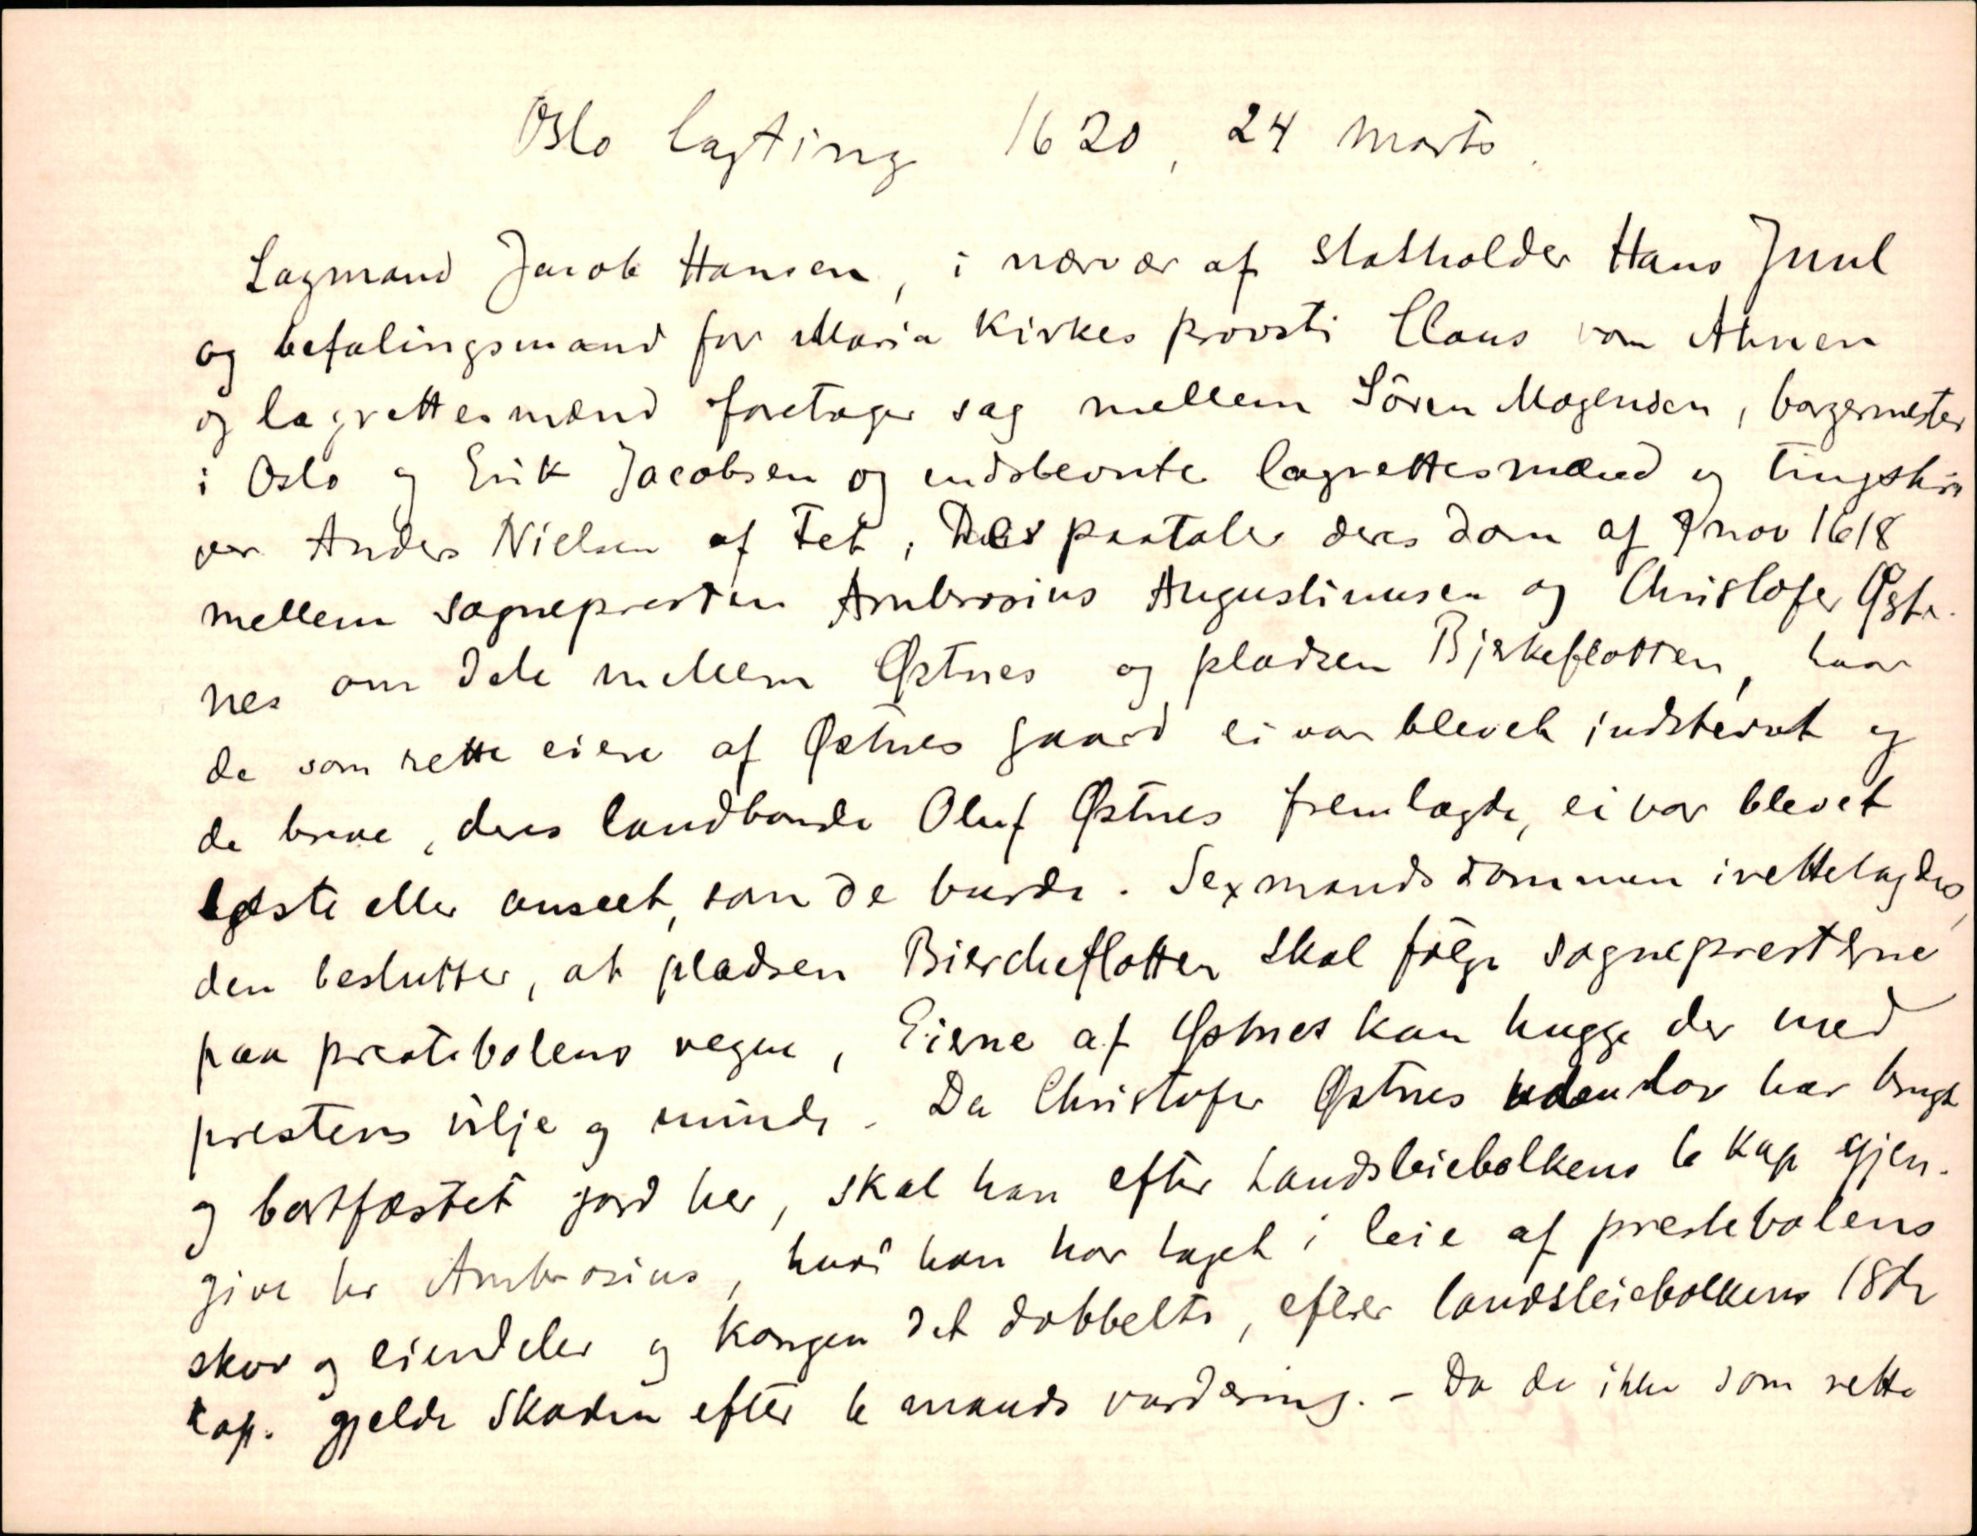 Oslo lagting 1620, 24 marts.
Lagmand Jacob Hansen, i nærvær af statholder Hans Juul
og befalingsmand for Maria Kirkes provsti Claus von Ahnen
og lagrettesmænd foretager sag mellem Sören Mogensen, borgermester
i Oslo og Erik Jacobsen og indstevnte lagrettesmænd og tingskri
ver Anders Nielsen af Fet, paataler deres dom af 9 nov 1618
mellem sognepresten Ambrosius Augustinusen og Christofer Øst-
nes om dele mellem Østnes og pladsen Bjerkeflotten, hvor
de som rette eiere af Østnes gaard ei var blevet indstevnt og
de breve, deres landbonde Oluf Østnes fremlagde, ei var blevet
læste eller anseet, som de burde. Sexmandsdommen irettelagdes,
den beslutter, at pladsen Biercheflotten skal følge sogneprestene
paa prestebolens vegne, Eierne af Østnes kan hugge der med
prestens vilje og minde. Da Christofer Østnes uden lov har brugt
og bortfæstet jord her, skal han efter Landsleiebolkens 6 Kap gjen-
give hr Ambrosius, hvad han har taget i leie af prestebolens
skov og eiendeler og kongen det dobbelte, efter landsleiebolkens 18de
kap. gjelde skaden efter 6 mands vurdering. - Da de ikke som rette